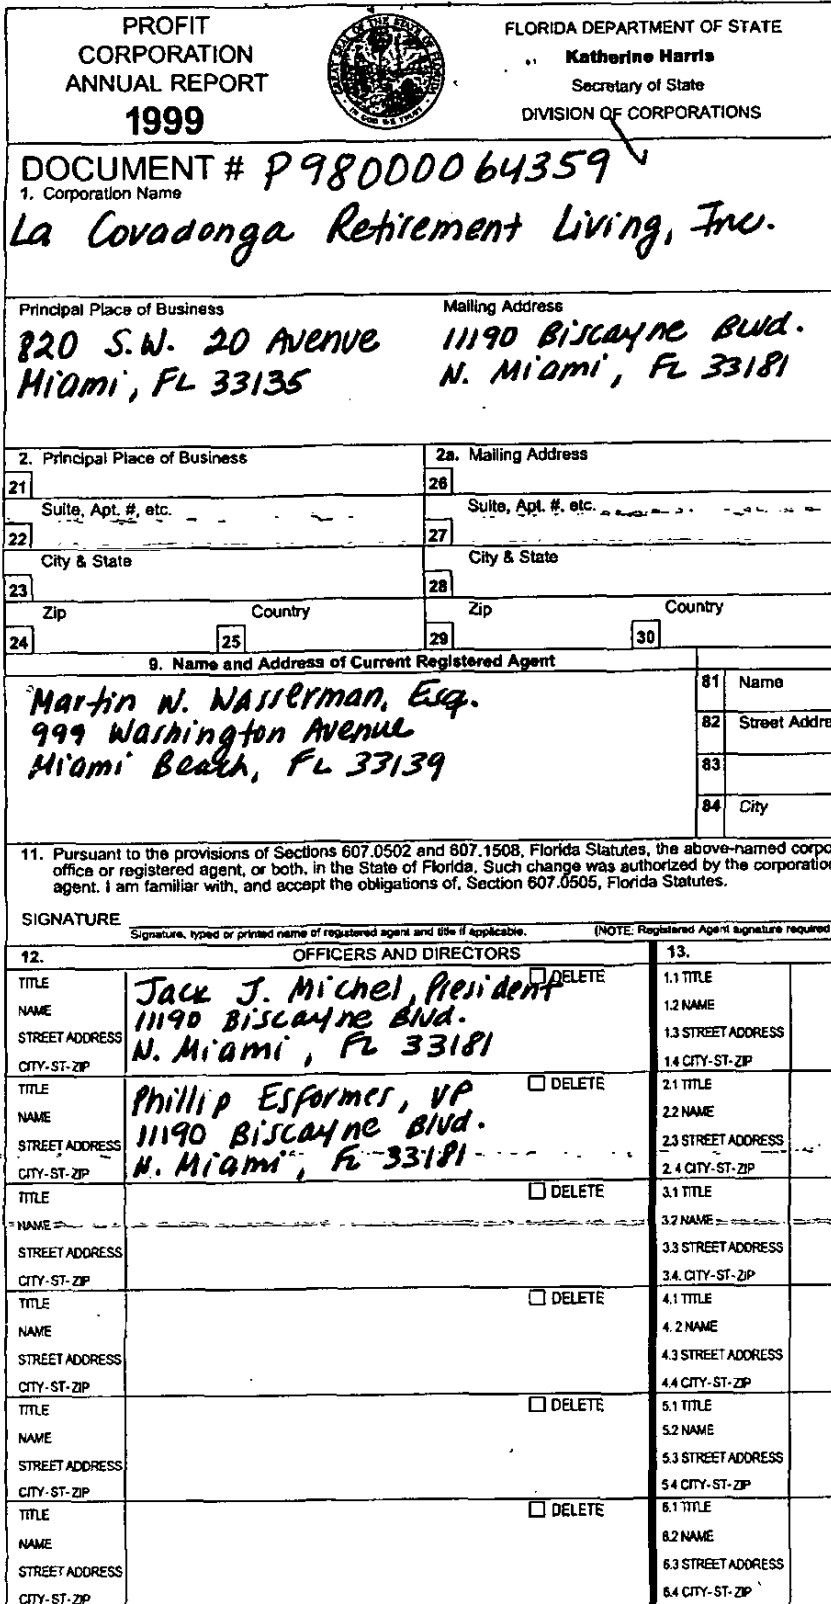 PROFIT
CORPORATION
ANNUAL REPORT
1999
GREAT SEAL OF THE STATE OF FLORIDA
IN GOD WE TRUST
FLORIDA DEPARTMENT OF STATE
Katherine Harris
Secretary of State
DIVISION OF CORPORATIONS
DOCUMENT # P98000064359
1. Corporation Name
La Covadonga Retirement Living, Inc.
Principal Place of Business
820 S.W. 20 Avenue
Miami, FL 33135
Mailing Address
11190 Biscayne Blvd.
N. Miami, FL 33181
2. Principal Place of Business
21
Suite, Apt. #, etc.
22
City & State
23
Zip
24
Country
25
2a. Mailing Address
26
Suite, Apt. #, etc.
27
City & State
28
Zip
29
Country
30
9. Name and Address of Current Registered Agent
Martin W. Wasserman, Esq.
999 Washington Avenue
Miami Beach, FL 33139
81 Name
82 Street Addre
83
84 City
11. Pursuant to the provisions of Sections 607.0502 and 607.1508, Florida Statutes, the above-named corpo
office or registered agent, or both, in the State of Florida. Such change was authorized by the corporation
agent. I am familiar with, and accept the obligations of, Section 607.0505, Florida Statutes.
SIGNATURE
Signature, typed or printed name of registered agent and title if applicable. (NOTE: Registered Agent signature required
12. OFFICERS AND DIRECTORS 13.
TITLE
NAME
STREET ADDRESS
CITY-ST-ZIP
Jack J. Michel, President
11190 Biscayne Blvd.
N. Miami, FL 33181
DELETE
1.1 TITLE
1.2 NAME
1.3 STREET ADDRESS
1.4 CITY-ST-ZIP
TITLE
NAME
STREET ADDRESS
CITY-ST-ZIP
Phillip Esformes, VP
11190 Biscayne Blvd.
N. Miami, FL 33181
DELETE
2.1 TITLE
2.2 NAME
2.3 STREET ADDRESS
2.4 CITY-ST-ZIP
TITLE
NAME
STREET ADDRESS
CITY-ST-ZIP
DELETE
3.1 TITLE
3.2 NAME
3.3 STREET ADDRESS
3.4. CITY-ST-ZIP
TITLE
NAME
STREET ADDRESS
CITY-ST-ZIP
DELETE
4.1 TITLE
4.2 NAME
4.3 STREET ADDRESS
4.4 CITY-ST-ZIP
TITLE
NAME
STREET ADDRESS
CITY-ST-ZIP
DELETE
5.1 TITLE
5.2 NAME
5.3 STREET ADDRESS
5.4 CITY-ST-ZIP
TITLE
NAME
STREET ADDRESS
CITY-ST-ZIP
DELETE
6.1 TITLE
6.2 NAME
6.3 STREET ADDRESS
6.4 CITY-ST-ZIP